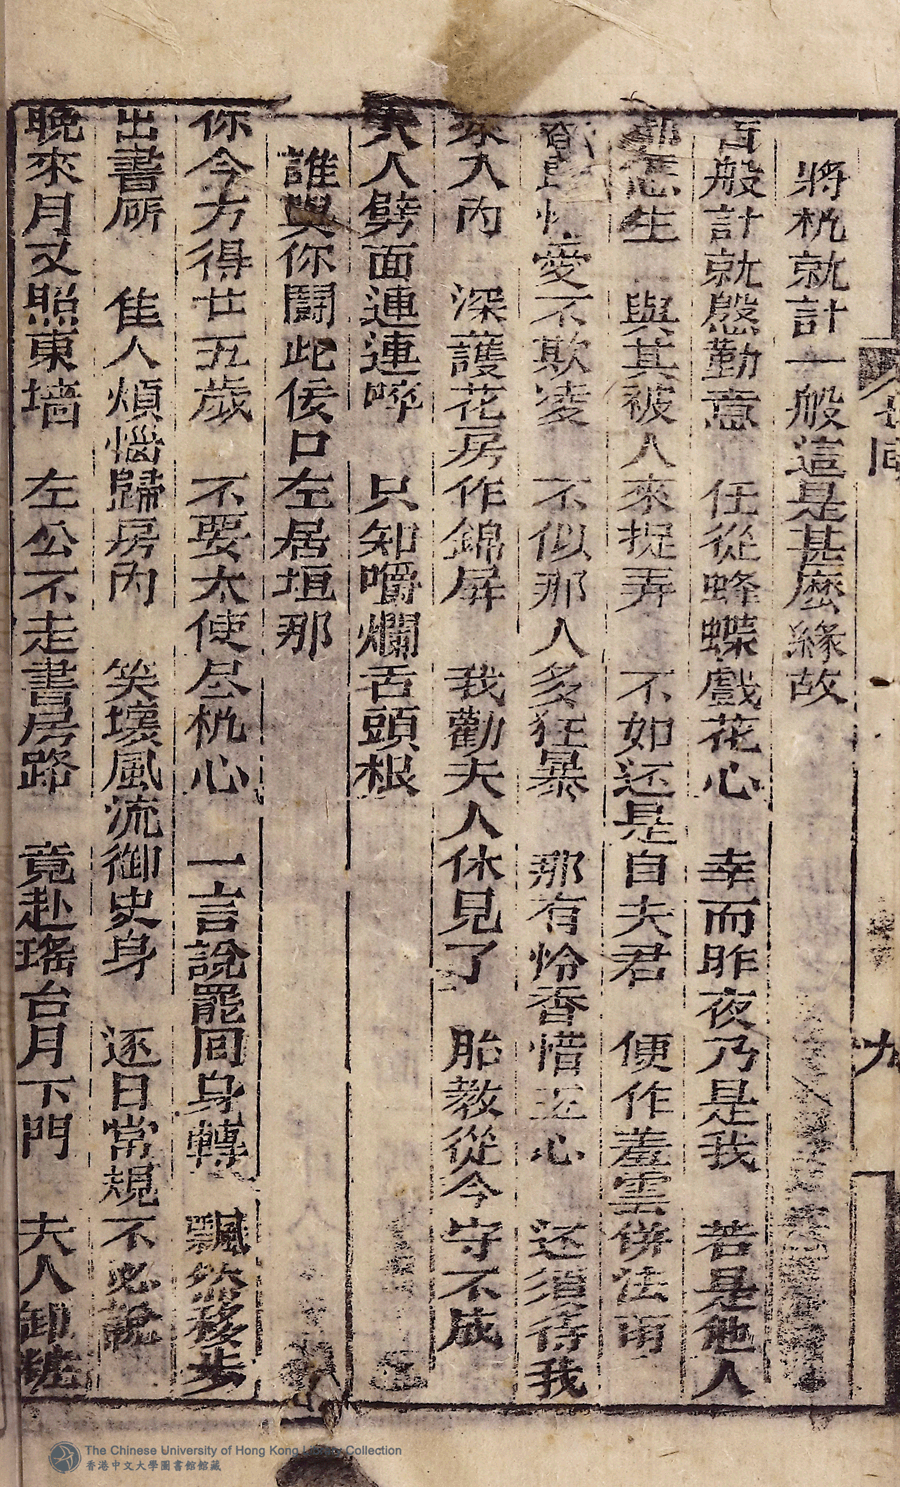 將机就計一般這是甚麼緣故
百般計就慇勤意 任從蜂蝶戲花心 幸而昨夜乃是我 若是他人
怎生 與其被人來捉弄 不如还是自夫君 便作羞雲併法雨
情愛不欺凌 不似那人多狂暴 那有怜香惜玉心 还須待我
入內 深護花房作錦屏 我勸夫人休見了 胎教從今守不成
夫人劈面連連啐 只知嚼爛舌頭根
誰與你鬪此侫口左居垣那
你今方得廿五歲 不要太使尽机心 一言說罷回身轉 飄然移步
出書𠩄 佳人煩惱歸房內 笑壞風流御史身 逐日常規不必說
晚來月又照東墻 左公不走書房路 竟赴瑤台月下門 夫人卸粧
九
The Chinese University of Hong Kong Library Collection
香港中文大學圖書館館藏